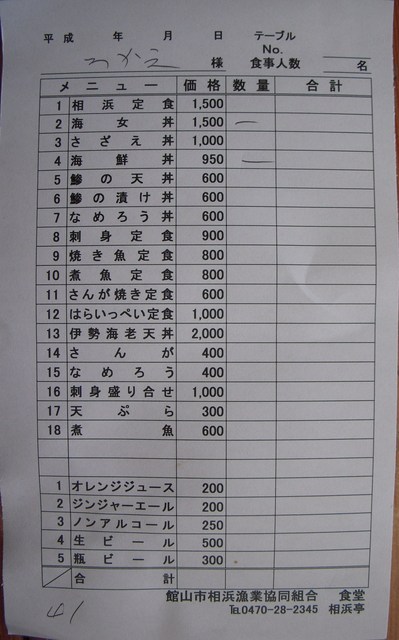 平成 年 月 日 テーブル
No.
つかえ 様 食事人数 名
メニュー 価格 数量 合計
1 相浜定食 1,500
2 海女丼 1,500 一
3 さざえ丼 1,000
4 海鮮丼 950 一
5 鯵の天丼 600
6 鯵の漬け丼 600
7 なめろう丼 600
8 刺身定食 900
9 焼き魚定食 800
10 煮魚定食 800
11 さんが焼き定食 600
12 はらいっぺい定食 1,000
13 伊勢海老天丼 2,000
14 さんが 400
15 なめろう 400
16 刺身盛り合せ 1,000
17 天ぷら 300
18 煮魚 600
1 オレンジジュース 200
2 ジンジャーエール 200
3 ノンアルコール 250
4 生ビール 500
5 瓶ビール 300
合計
館山市相浜漁業協同組合 食堂
41 ℡0470-28-2345 相浜亭